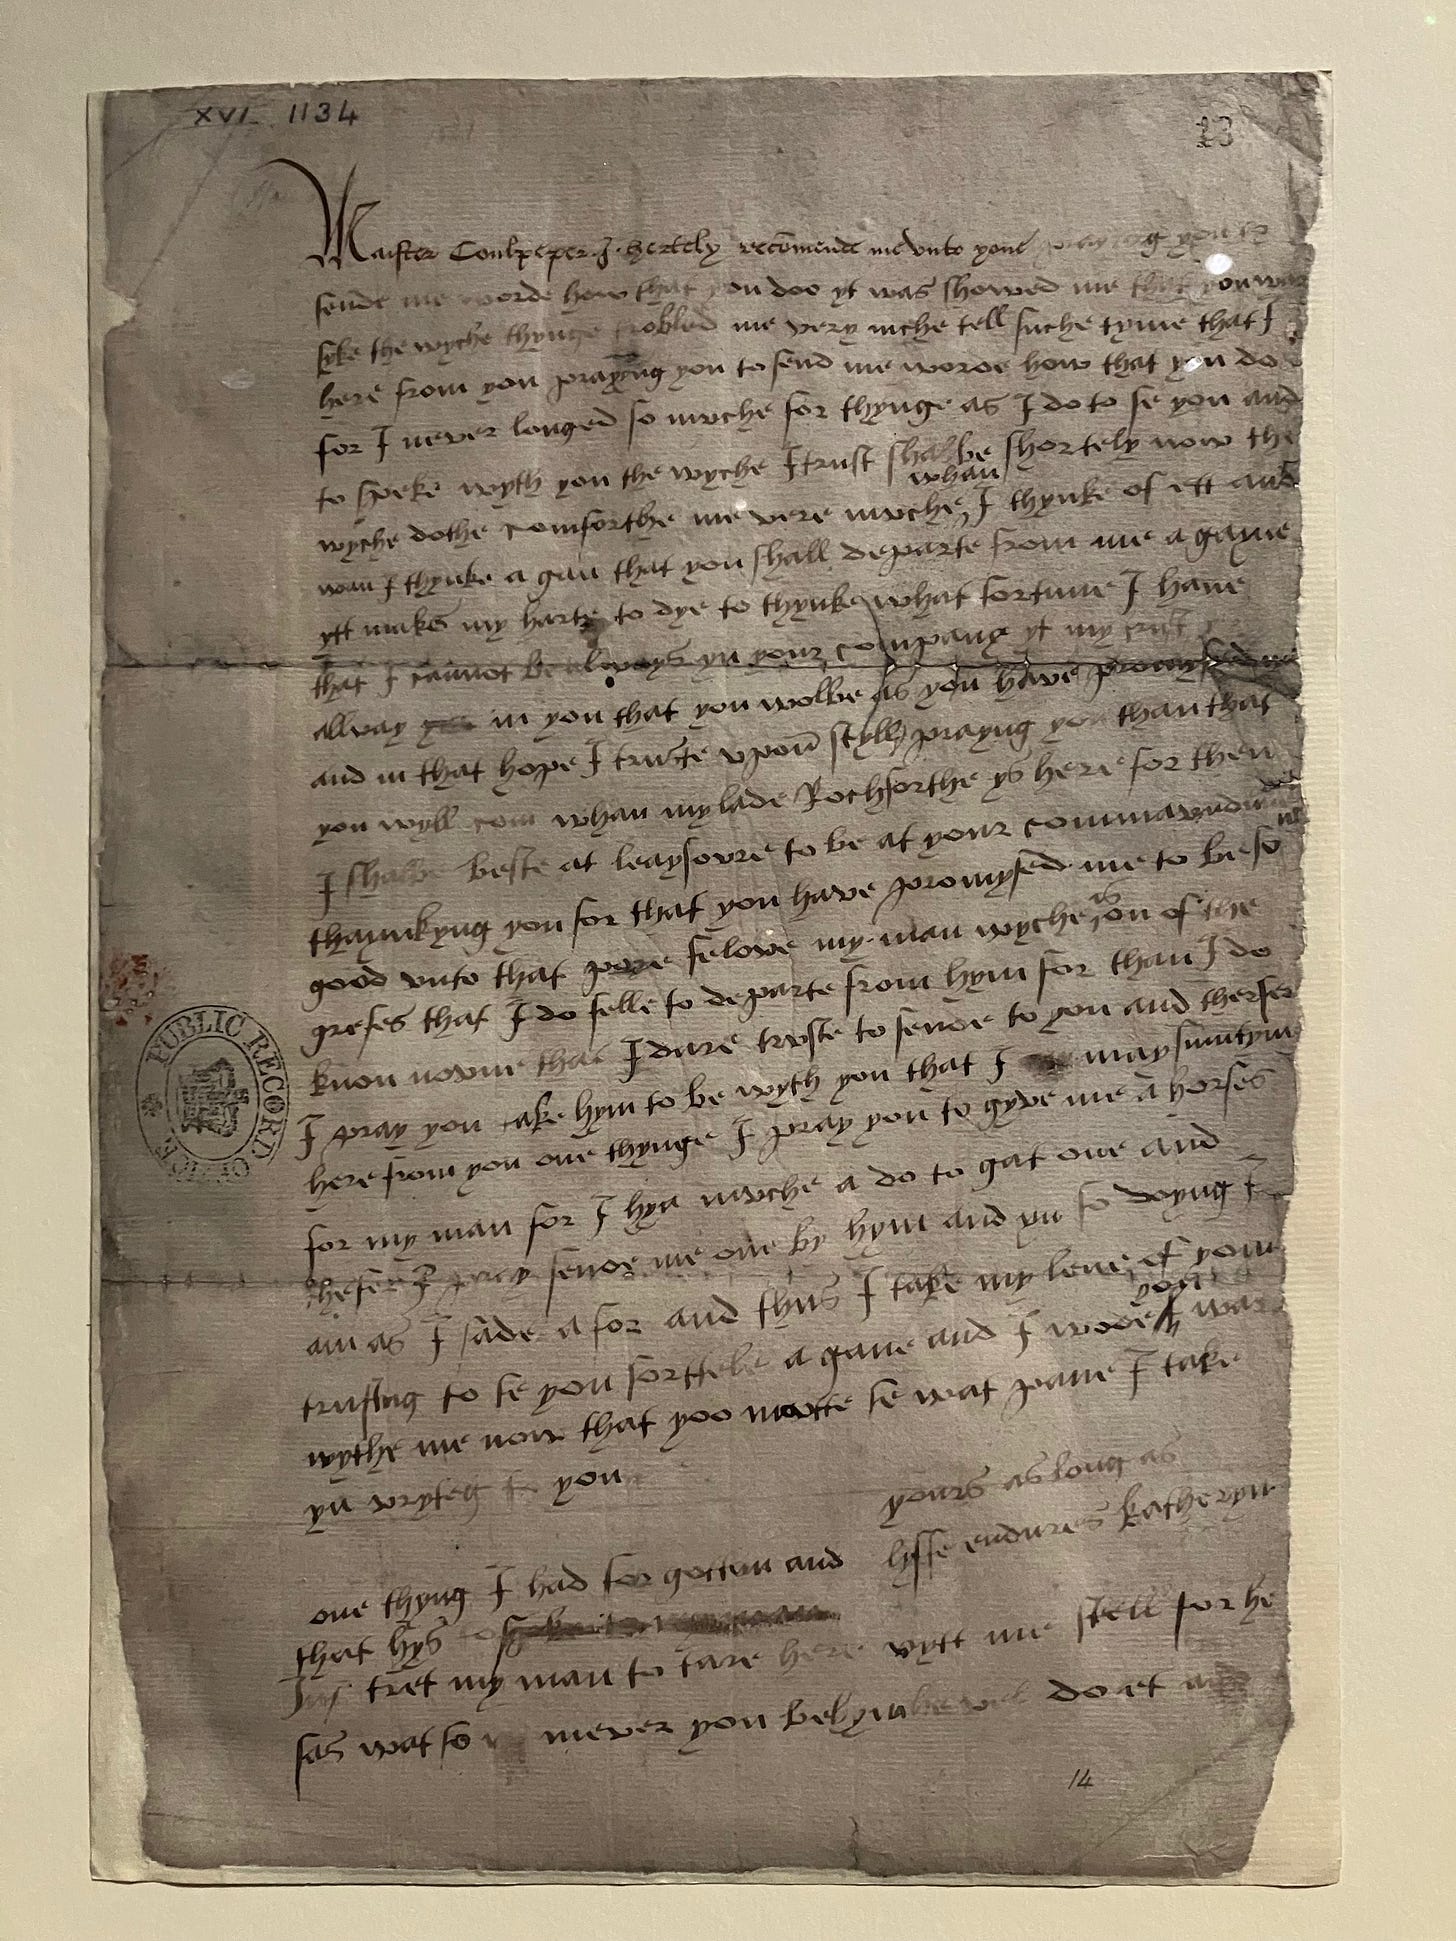 XVI 1134
23
Maister Coulpeper I hertely recomende me unto youe praying you to
sende me worde how that you doo yt was showed me that you was
syke the wyche thynge trobled me very muche tell suche tyme that I
here from you prayng you to send me worde how that you do
for I never longed so muche for thynge as I do to se you and
to speke wyth you the wyche I trust shalbe shortely now the
whan
wyche dothe comforthe me vere muche I thynke of ett and
wan I thynke a gan that you shall departe from me a gayne
ytt makes my harte to dye to thynke what fortune I have
that I cannot be always yn your company yt my trust
allway in you that you wolbe as you have promysed me
and in that hope I truste upon styll prayng you than that
you wyll com whan my lade Rochforthe ys here for then
I shalbe beste at leaysoure to be at your commaundment
thaynkyng you for that you have promysed me to be so
good unto that pore felowe my man wyche is on of the
grefes that I do felle to departe from hym for than I do
know noone that I dare truste to sende to you and therfor
I pray you take hym to be wyth you that I may sumtym
here from you one thynge I pray you to gyve me a horse
for my man for I hyd muche a do to gat one and
thefer I pray sende me one by hym and yn so doyng I
am as I sade afor and thus I take my leve of you
trusting to se you shorttele a gane and I wode you was
wythe me now that yoo maitte se wat pane I take
yn wryteg to you
yours as long as
lyffe endures
Katheryn
one thyng I had forgotten and
that hys to
tret my man to tare here wytt me stell for he
sas wat so mever you bed hym he wel do et
14
PUBLIC RECORD OFFICE